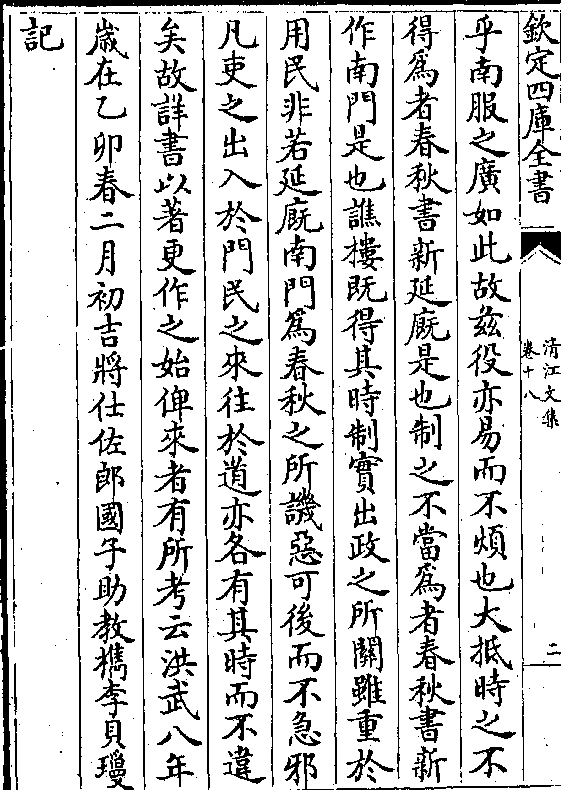 欽定四庫全書
清江文集
卷十八
二
乎南服之廣如此故兹役亦易而不煩也大抵時之不
得爲者春秋書新延廐是也制之不當爲者春秋書新
作南門是也譙樓既得其時制實出政之所關雖重於
用民非若延廐南門爲春秋之所譏惡可後而不急邪
凡吏之出入於門民之來往於道亦各有其時而不違
矣故詳書以著更作之始俾來者有所考云洪武八年
嵗在乙卯春二月初吉將仕佐郎國子助教檇李貝瓊
記